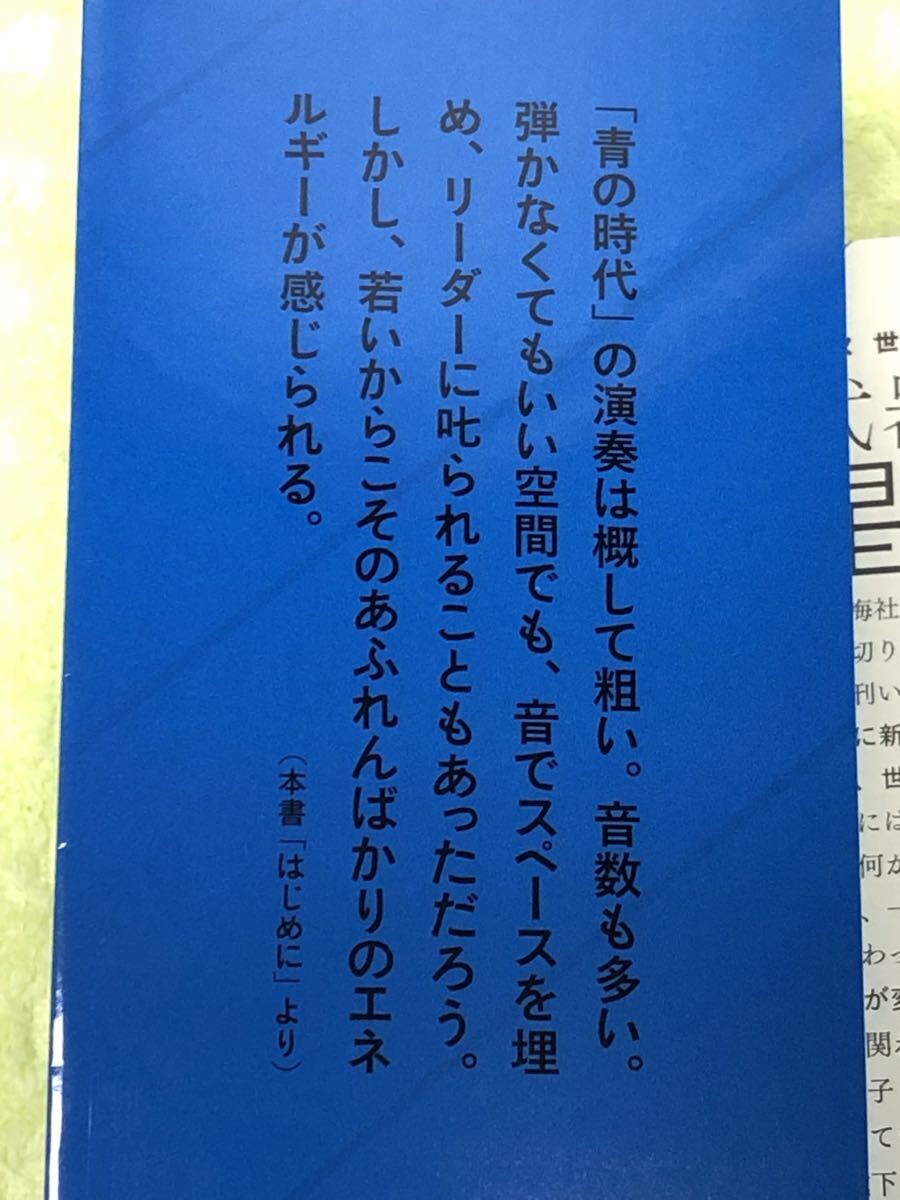 「青の時代」の演奏は概して粗い。音数も多い。
弾かなくてもいい空間でも、音でスペースを埋
め、リーダーに叱られることもあっただろう。
しかし、若いからこそのあふれんばかりのエネ
ルギーが感じられる。
（本書「はじめに」より）
世
海社
切り
刊い
に新
、世
には
何か
、一
わっ
が変
関わ
子
て
下